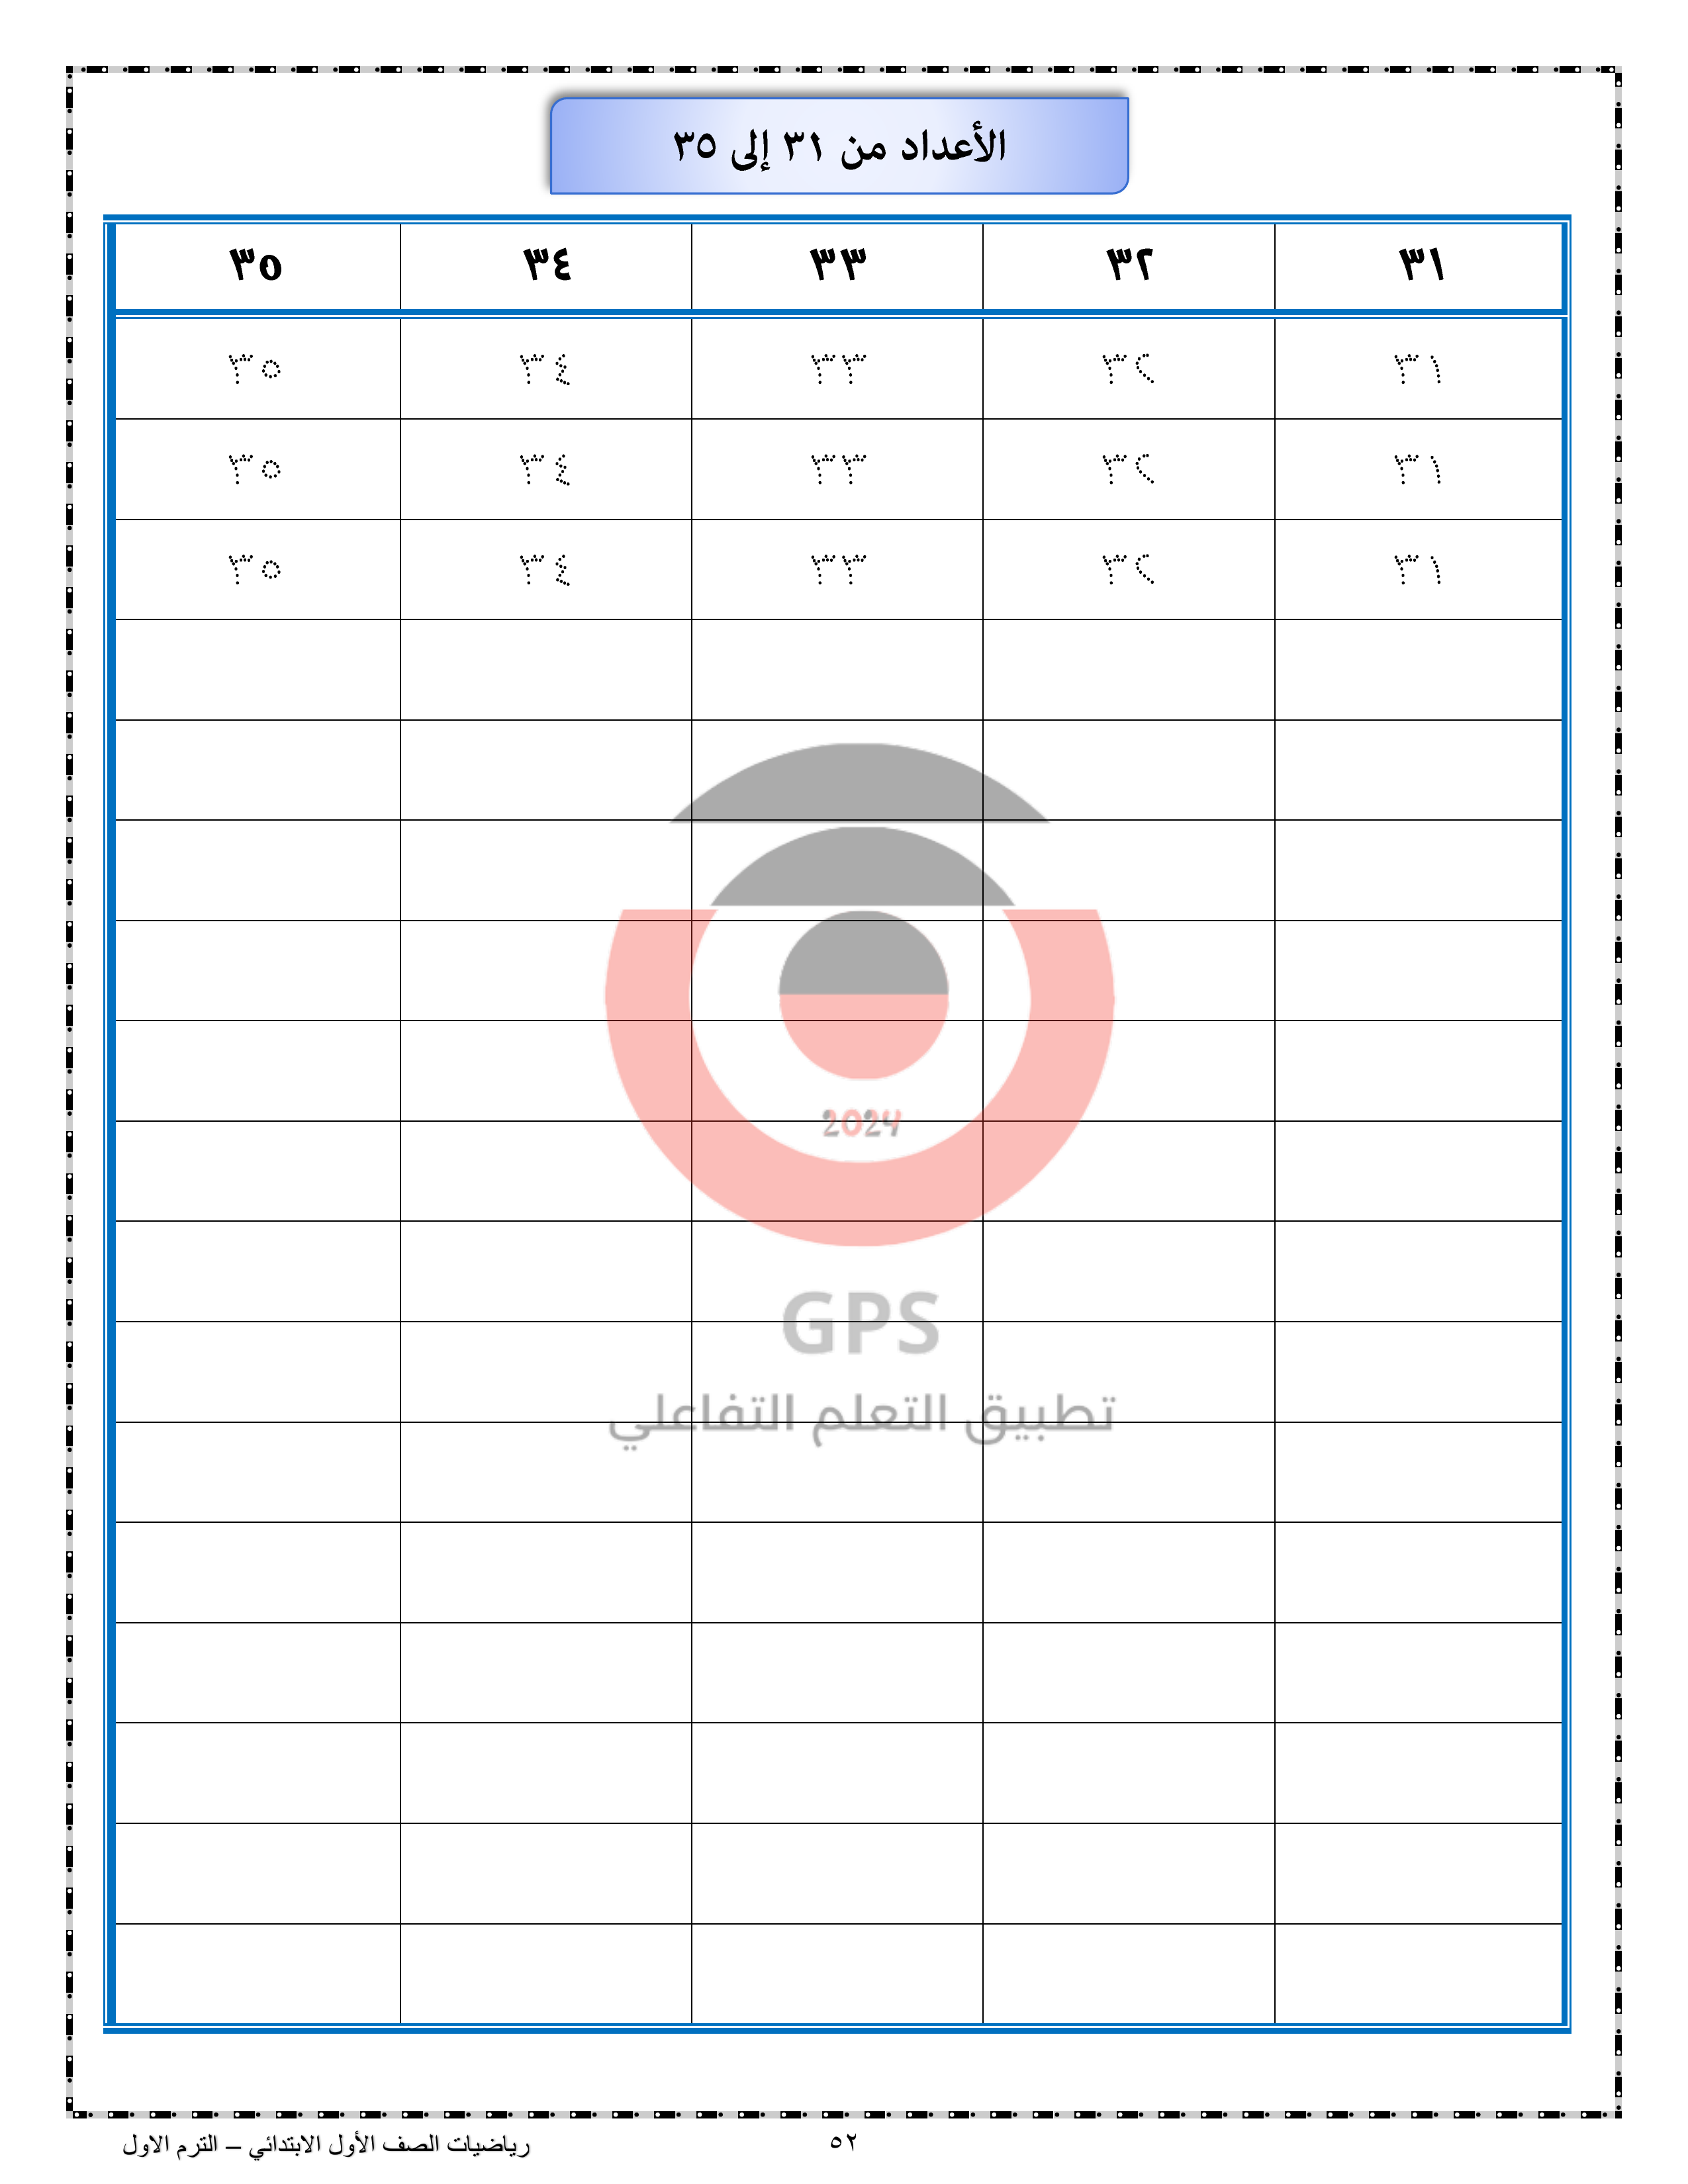 الأعداد من ٣١ إلى ٣٥
٣١ ٣٢ ٣٣ ٣٤ ٣٥
٣١ ٣٢ ٣٣ ٣٤ ٣٥
٣١ ٣٢ ٣٣ ٣٤ ٣٥
٣١ ٣٢ ٣٣ ٣٤ ٣٥
2024
GPS
تطبيق التعلم التفاعلي
٥٢
رياضيات الصف الأول الابتدائي – الترم الاول